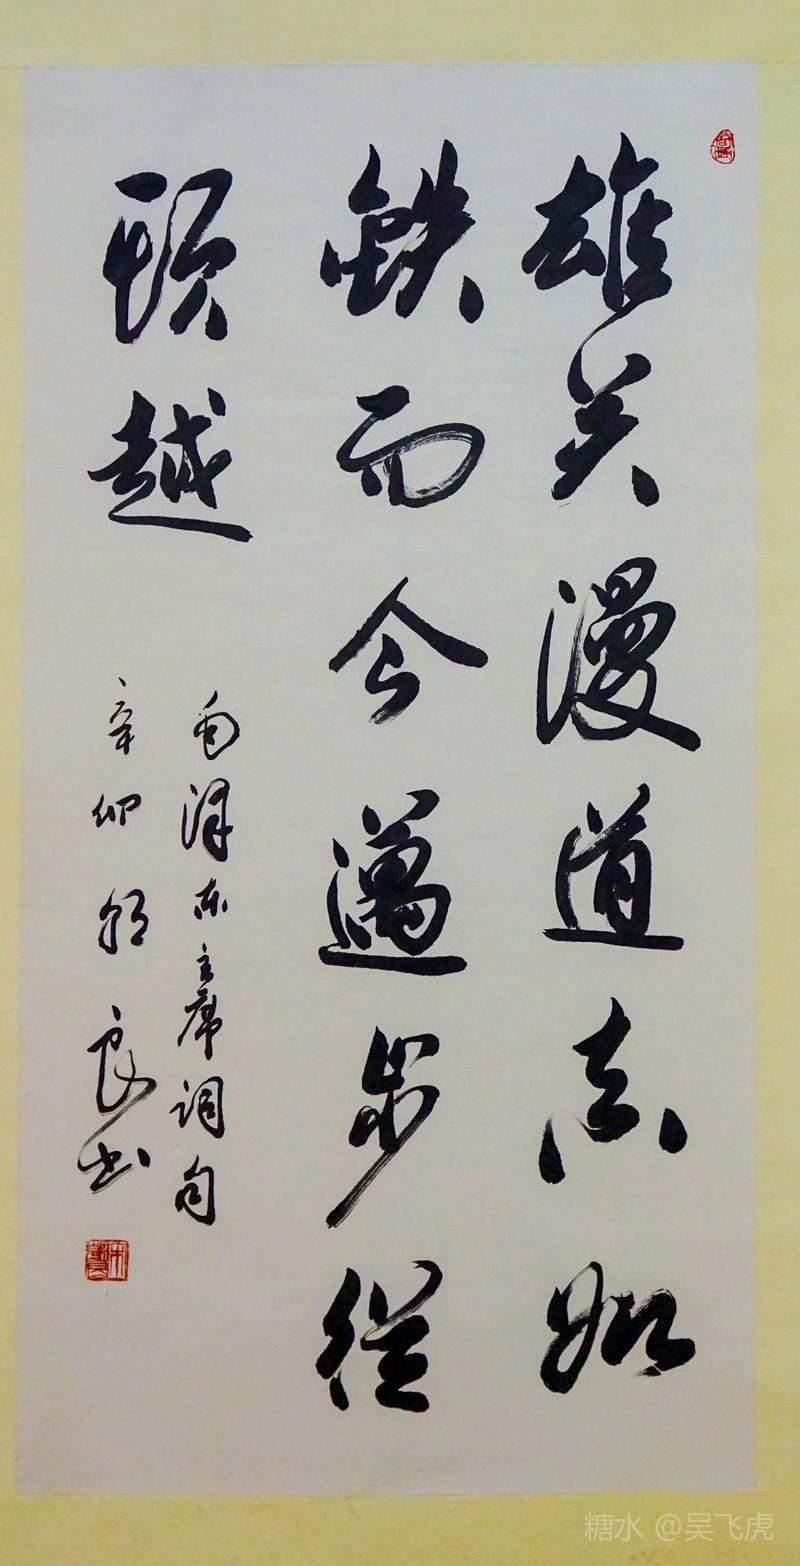 雄关漫道真如
鉄而今邁步從
頭越
毛泽东主席词句
辛卯良书
糖水 @吴飞虎